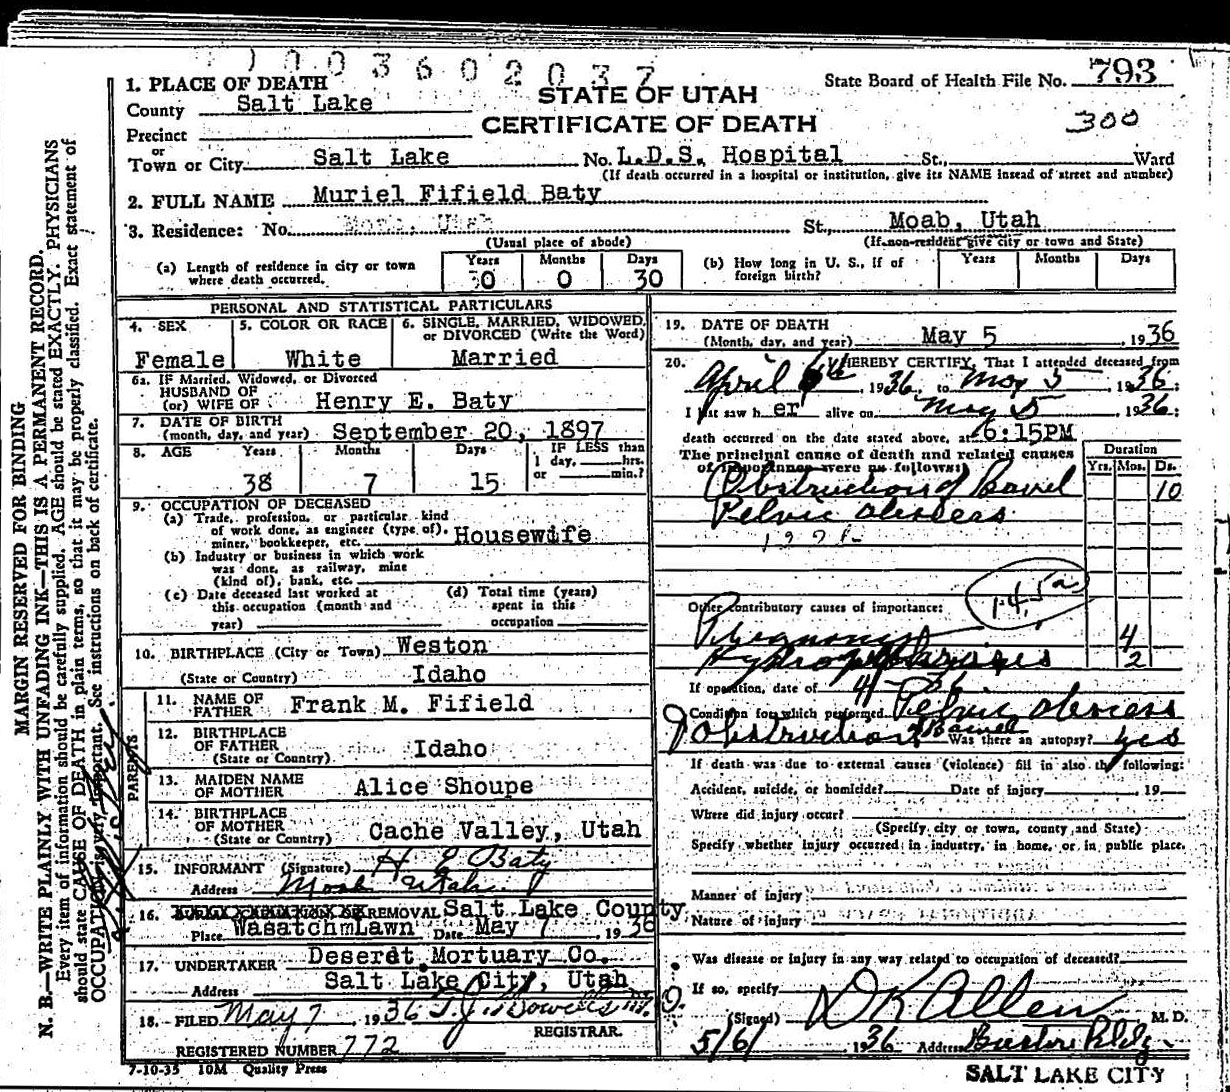 1003602037
1. PLACE OF DEATH
State Board of Health File No. 793
County Salt Lake
STATE OF UTAH
CERTIFICATE OF DEATH
300
Precinct
or
Town or City Salt Lake No. L.D.S. Hospital St., Ward
(If death occurred in a hospital or institution, give its NAME insead of street and number)
2. FULL NAME Muriel Fifield Baty
3. Residence: No. Moab, Utah St., Moab, Utah
(Usual place of abode) (If non-resident give city or town and State)
(a) Length of residence in city or town where death occurred. Years 0 Months 0 Days 30
(b) How long in U. S., if of foreign birth? Years Months Days
PERSONAL AND STATISTICAL PARTICULARS
4. SEX 5. COLOR OR RACE 6. SINGLE, MARRIED, WIDOWED, or DIVORCED (Write the Word)
Female White Married
6a. IF Married, Widowed, or Divorced
HUSBAND OF
(or) WIFE OF Henry E. Baty
7. DATE OF BIRTH
(month, day, and year) September 20, 1897
8. AGE Years Months Days IF LESS than
1 day, hrs.
or min.?
38 7 15
9. OCCUPATION OF DECEASED
(a) Trade, profession, or particular kind
of work done, as engineer (type of),
miner, bookkeeper, etc. Housewife
(b) Industry or business in which work
was done, as railway, mine
(kind of), bank, etc.
(c) Date deceased last worked at
this occupation (month and
year)
(d) Total time (years)
spent in this
occupation
10. BIRTHPLACE (City or Town) Weston
(State or Country) Idaho
PARENTS
11. NAME OF
FATHER Frank M. Fifield
12. BIRTHPLACE
OF FATHER Idaho
(State or Country)
13. MAIDEN NAME
OF MOTHER Alice Shoupe
14. BIRTHPLACE
OF MOTHER
(State or Country) Cache Valley, Utah
15. INFORMANT (Signature) H E Baty
Address Moab Utah
16. REMOVAL Salt Lake County
Place WasatchmLawn Date May 7, 1936
17. UNDERTAKER Deseret Mortuary Co.
Address Salt Lake City, Utah
18. FILED May 7 1936
REGISTRAR.
REGISTERED NUMBER 772
7-10-35 10M Quality Press
19. DATE OF DEATH
(Month, day, and year) May 5, 1936
20. I HEREBY CERTIFY, That I attended deceased from
April 6th, 1936, to May 5 1936;
I last saw her alive on May 5 1936;
death occurred on the date stated above, at 6:15PM
The principal cause of death and related causes
of importance were as follows:
Duration
Yrs. Mos. Ds.
Obstruction of Bowel 10
Pelvic abscess
145a
Other contributory causes of importance:
Pregnancy 4
2
If operation, date of
Condition for which performed Pelvic abscess
Obstruction Bowel Was there an autopsy? yes
If death was due to external causes (violence) fill in also the following:
Accident, suicide, or homicide? Date of injury , 19
Where did injury occur?
(Specify city or town, county and State)
Specify whether injury occurred in industry, in home, or in public place.
Manner of injury
Nature of injury
Was disease or injury in any way related to occupation of deceased?
If so, specify
(Signed) D K Allen M. D.
5/6/ 1936 Address
SALT LAKE CITY
MARGIN RESERVED FOR BINDING
N. B.—WRITE PLAINLY WITH UNFADING INK—THIS IS A PERMANENT RECORD.
Every item of information should be carefully supplied. AGE should be stated EXACTLY. PHYSICIANS
should state CAUSE OF DEATH in plain terms, so that it may be properly classified. Exact statement of
OCCUPATION is very important. See instructions on back of certificate.